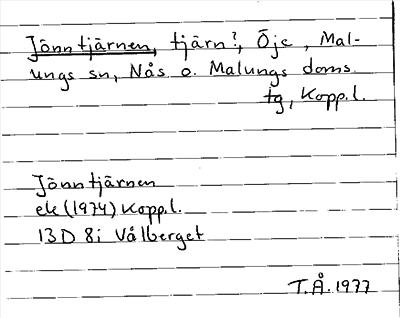 Jönntjärnen, tjärn?, Öje, Mal-
ungs sn, Nås o. Malungs doms.
tg, Kopp.l.
Jönntjärnen
ek (1974) Kopp.l.
13D 8i Vålberget
T.Å. 1977